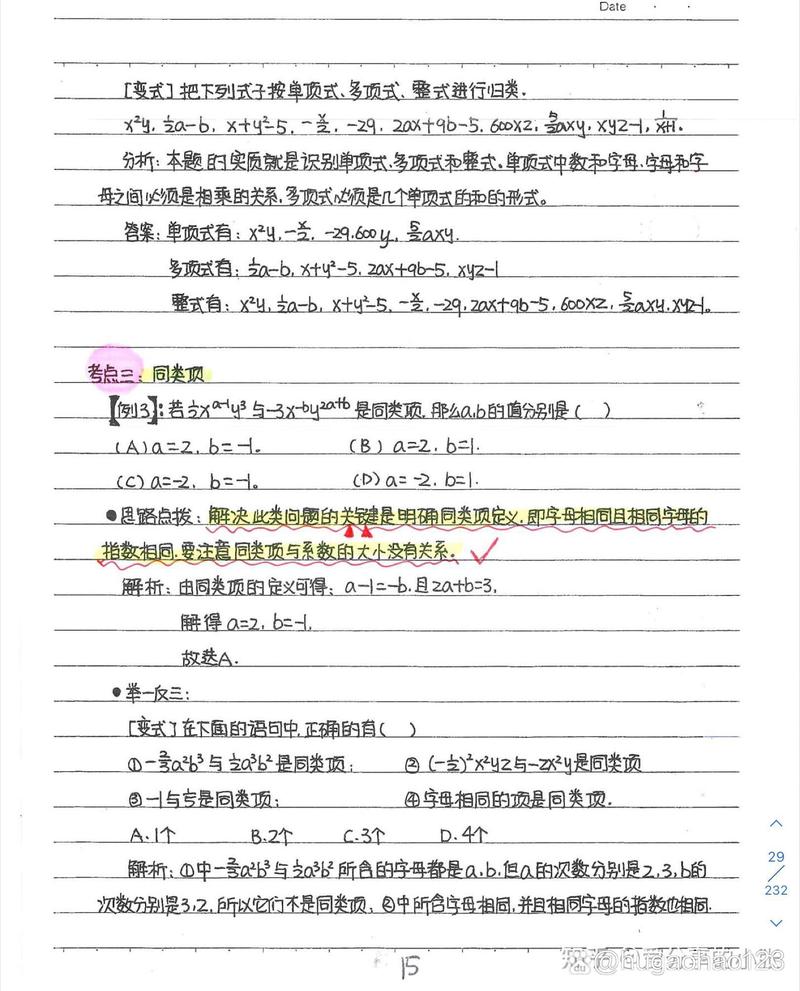 Date
[变式]把下列式子按单项式、多项式、整式进行归类.
x²y, ½a-b, x+y²-5, -x/2, -29, 2ax+9b-5, 600xz, 5/2axy, xyz-1, 1/x+1.
分析:本题的实质就是识别单项式、多项式和整式.单项式中数和字母、字母和字
母之间必须是相乘的关系.多项式必须是几个单项式的和的形式。
答案:单项式有: x²y, -x/2, -29.600y, 5/2axy.
多项式有: ½a-b, x+y²-5, 2ax+9b-5, xyz-1
整式有: x²y, ½a-b, x+y²-5, -x/2, -29, 2ax+9b-5, 600xz, 5/2axy, xyz-1。
考点三:同类项
【例3】:若½xᵃ⁻¹y³与-3x⁻ᵇy²ᵃ⁺ᵇ是同类项,那么a,b的值分别是( )
(A)a=2, b=-1. (B) a=2, b=1.
(C)a=-2, b=-1. (D)a=-2, b=1.
●思路点拨:解决此类问题的关键是明确同类项定义,即字母相同且相同字母的
指数相同.要注意同类项与系数的大小没有关系.
解析:由同类项的定义可得: a-1=-b,且2a+b=3,
解得a=2, b=-1,
故选A.
●举一反三:
[变式]在下面的语句中,正确的有( )
①-⅔a²b³与½a³b²是同类项; ②(-½)²x²yz与-zx²y是同类项
③-1与是同类项; ④字母相同的项是同类项.
A.1个 B.2个 C.3个 D.4个
解析:①中-⅔a²b³与½a³b²所含的字母都是a,b,但a的次数分别是2,3,b的
次数分别是3,2,所以它们不是同类项;②中所含字母相同,并且相同字母的指数也相同.
15
29
232
知乎